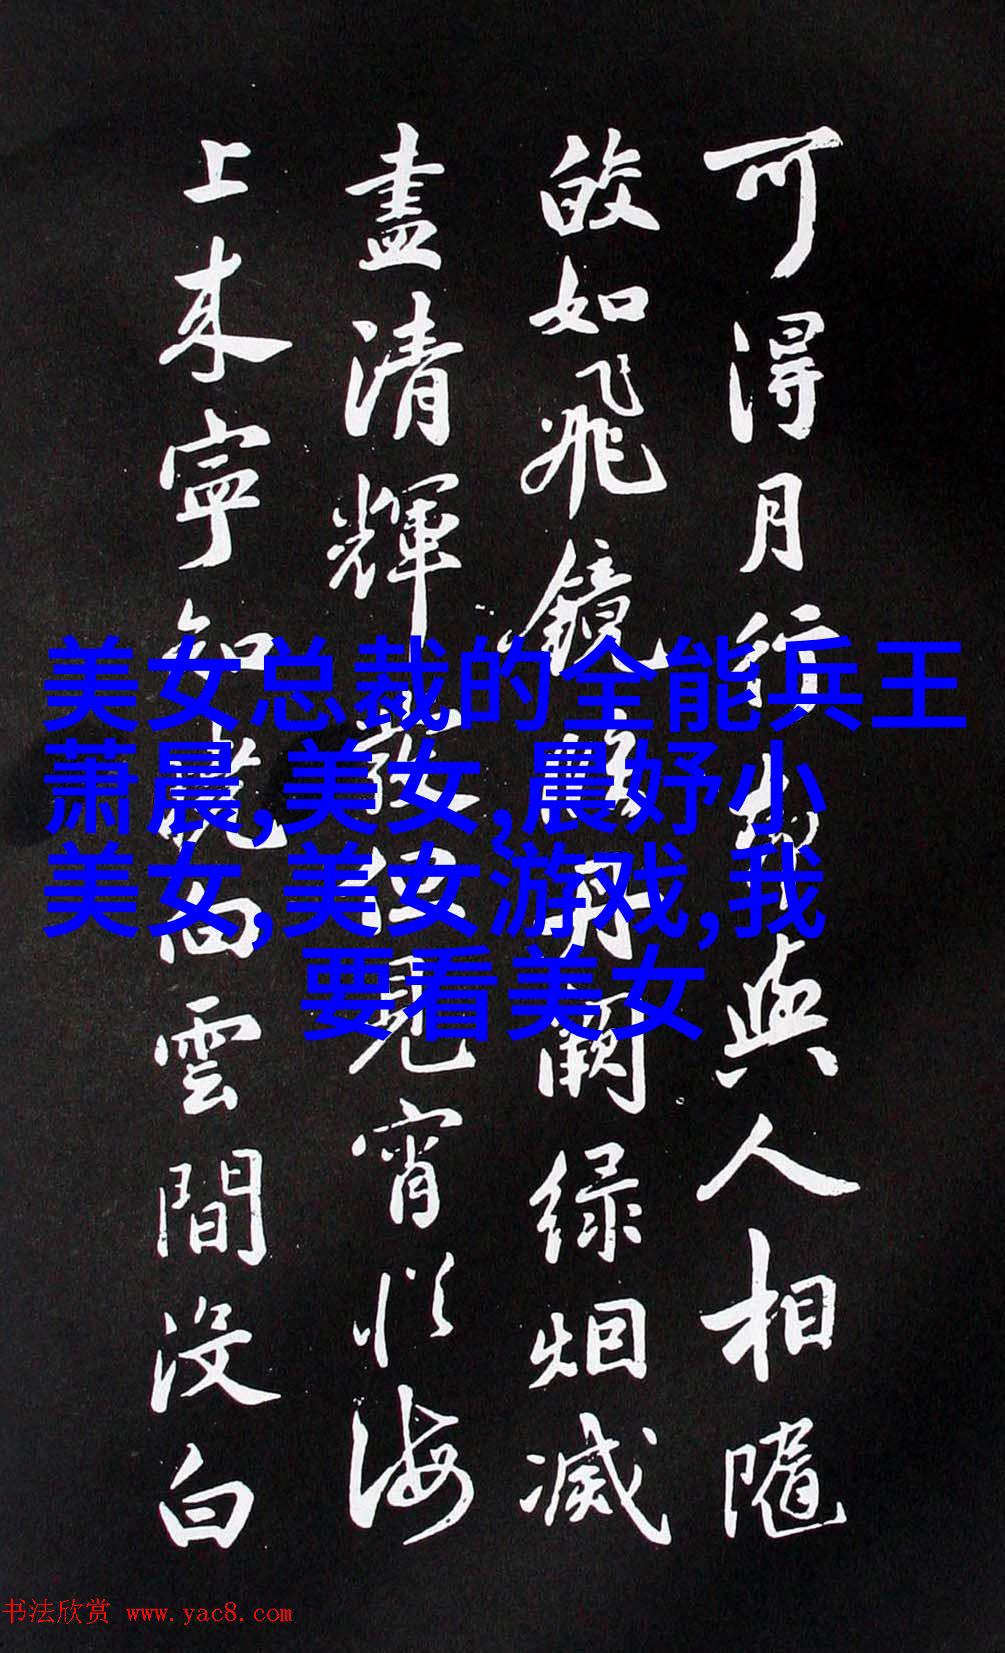 可得月行却與人相隨
皎如飛鏡臨丹闕緑烟滅
盡清輝發但見宵從海
上来寧知曉向雲間没白
美女总裁的全能兵王
萧晨,美女,晨妤小
美女,美女游戏,我
要看美女
书法欣赏 www.yac8.com